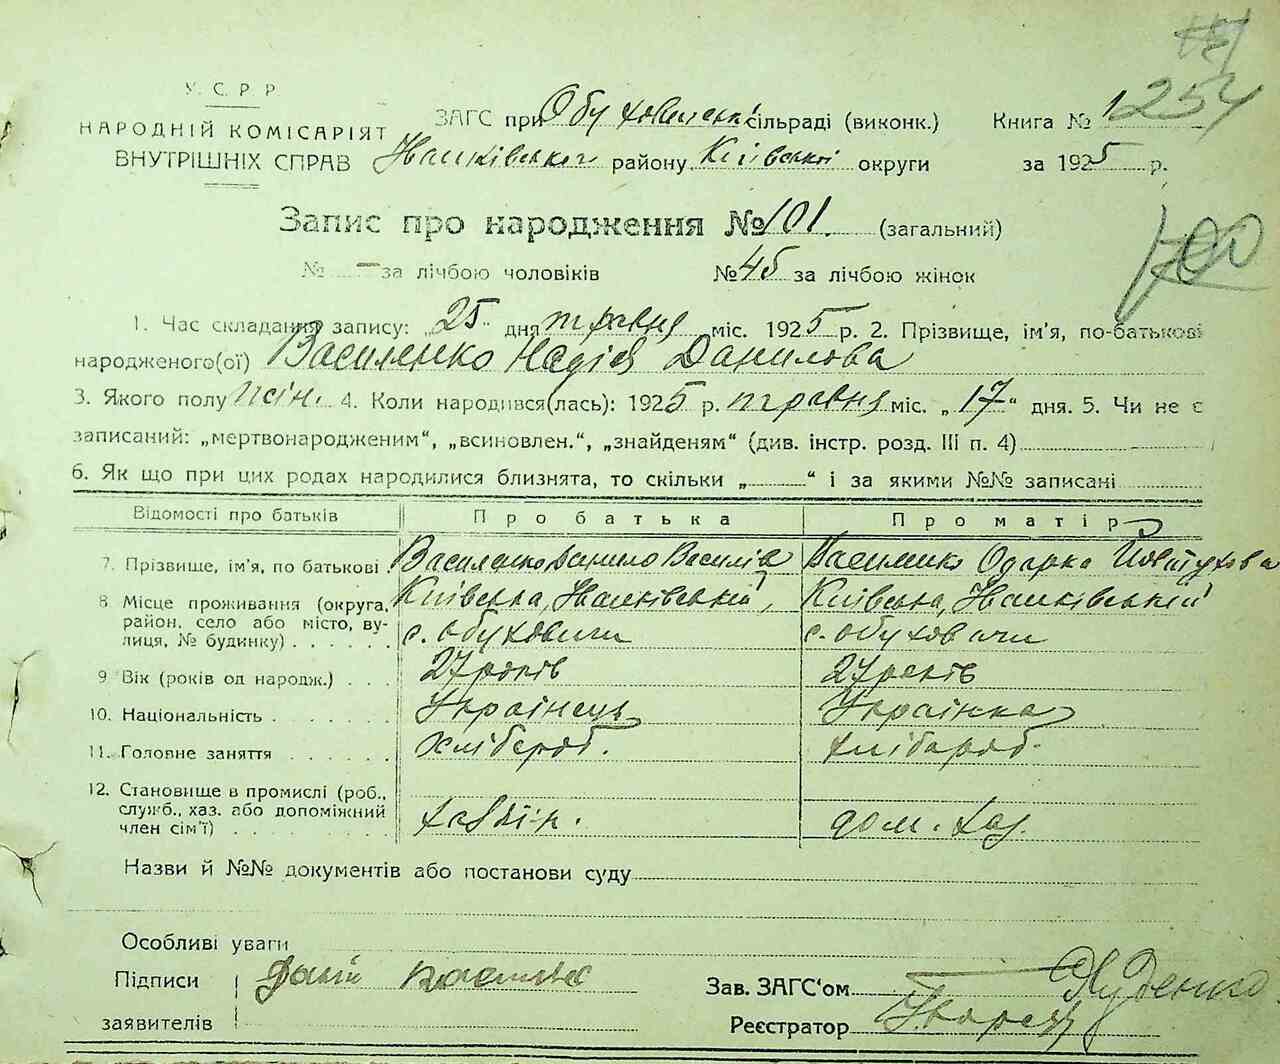 У. С. Р. Р
НАРОДНІЙ КОМІСАРІЯТ
ВНУТРІШНІХ СПРАВ
ЗАГС при Обуховицькій сільраді (виконк.) Книга № 1 254
Іванківського району Київської округи за 1925 р.
Запис про народження № 101. (загальний)
№ — за лічбою чоловіків № 45 за лічбою жінок
700
1. Час складання запису: „25“ дня травня міс. 1925 р. 2. Прізвище, ім'я, по-батькові
народженого(ої) Василенко Надія Данилова
3. Якого полу жін. 4. Коли народився(лась): 1925 р. травня міс. „17“ дня. 5. Чи не є
записаний: „мертвонародженим“, „всиновлен.“, „знайденям“ (див. інстр. розд. III п. 4)
6. Як що при цих родах народилися близнята, то скільки „ “ і за якими №№ записані
Відомості про батьків Про батька Про матір
7. Прізвище, ім'я, по батькові Василенко Данило Василів Василенко Одарка Йовтухова
8 Місце проживання (округа, район, село або місто, вулиця, № будинку) Київська, Іванківський, с. Обуховичи Київська, Іванківський с. Обуховичи
9 Вік (років од народж.) 27 років 27 років
10. Національність Українець Українка
11. Головне заняття хлібороб. хлібороб.
12. Становище в промислі (роб., служб., хаз. або допоміжний член сім'ї) дом. хаз.
Назви й №№ документів або постанови суду
Особливі уваги
Підписи
заявителів
Зав. ЗАГС'ом
Реєстратор